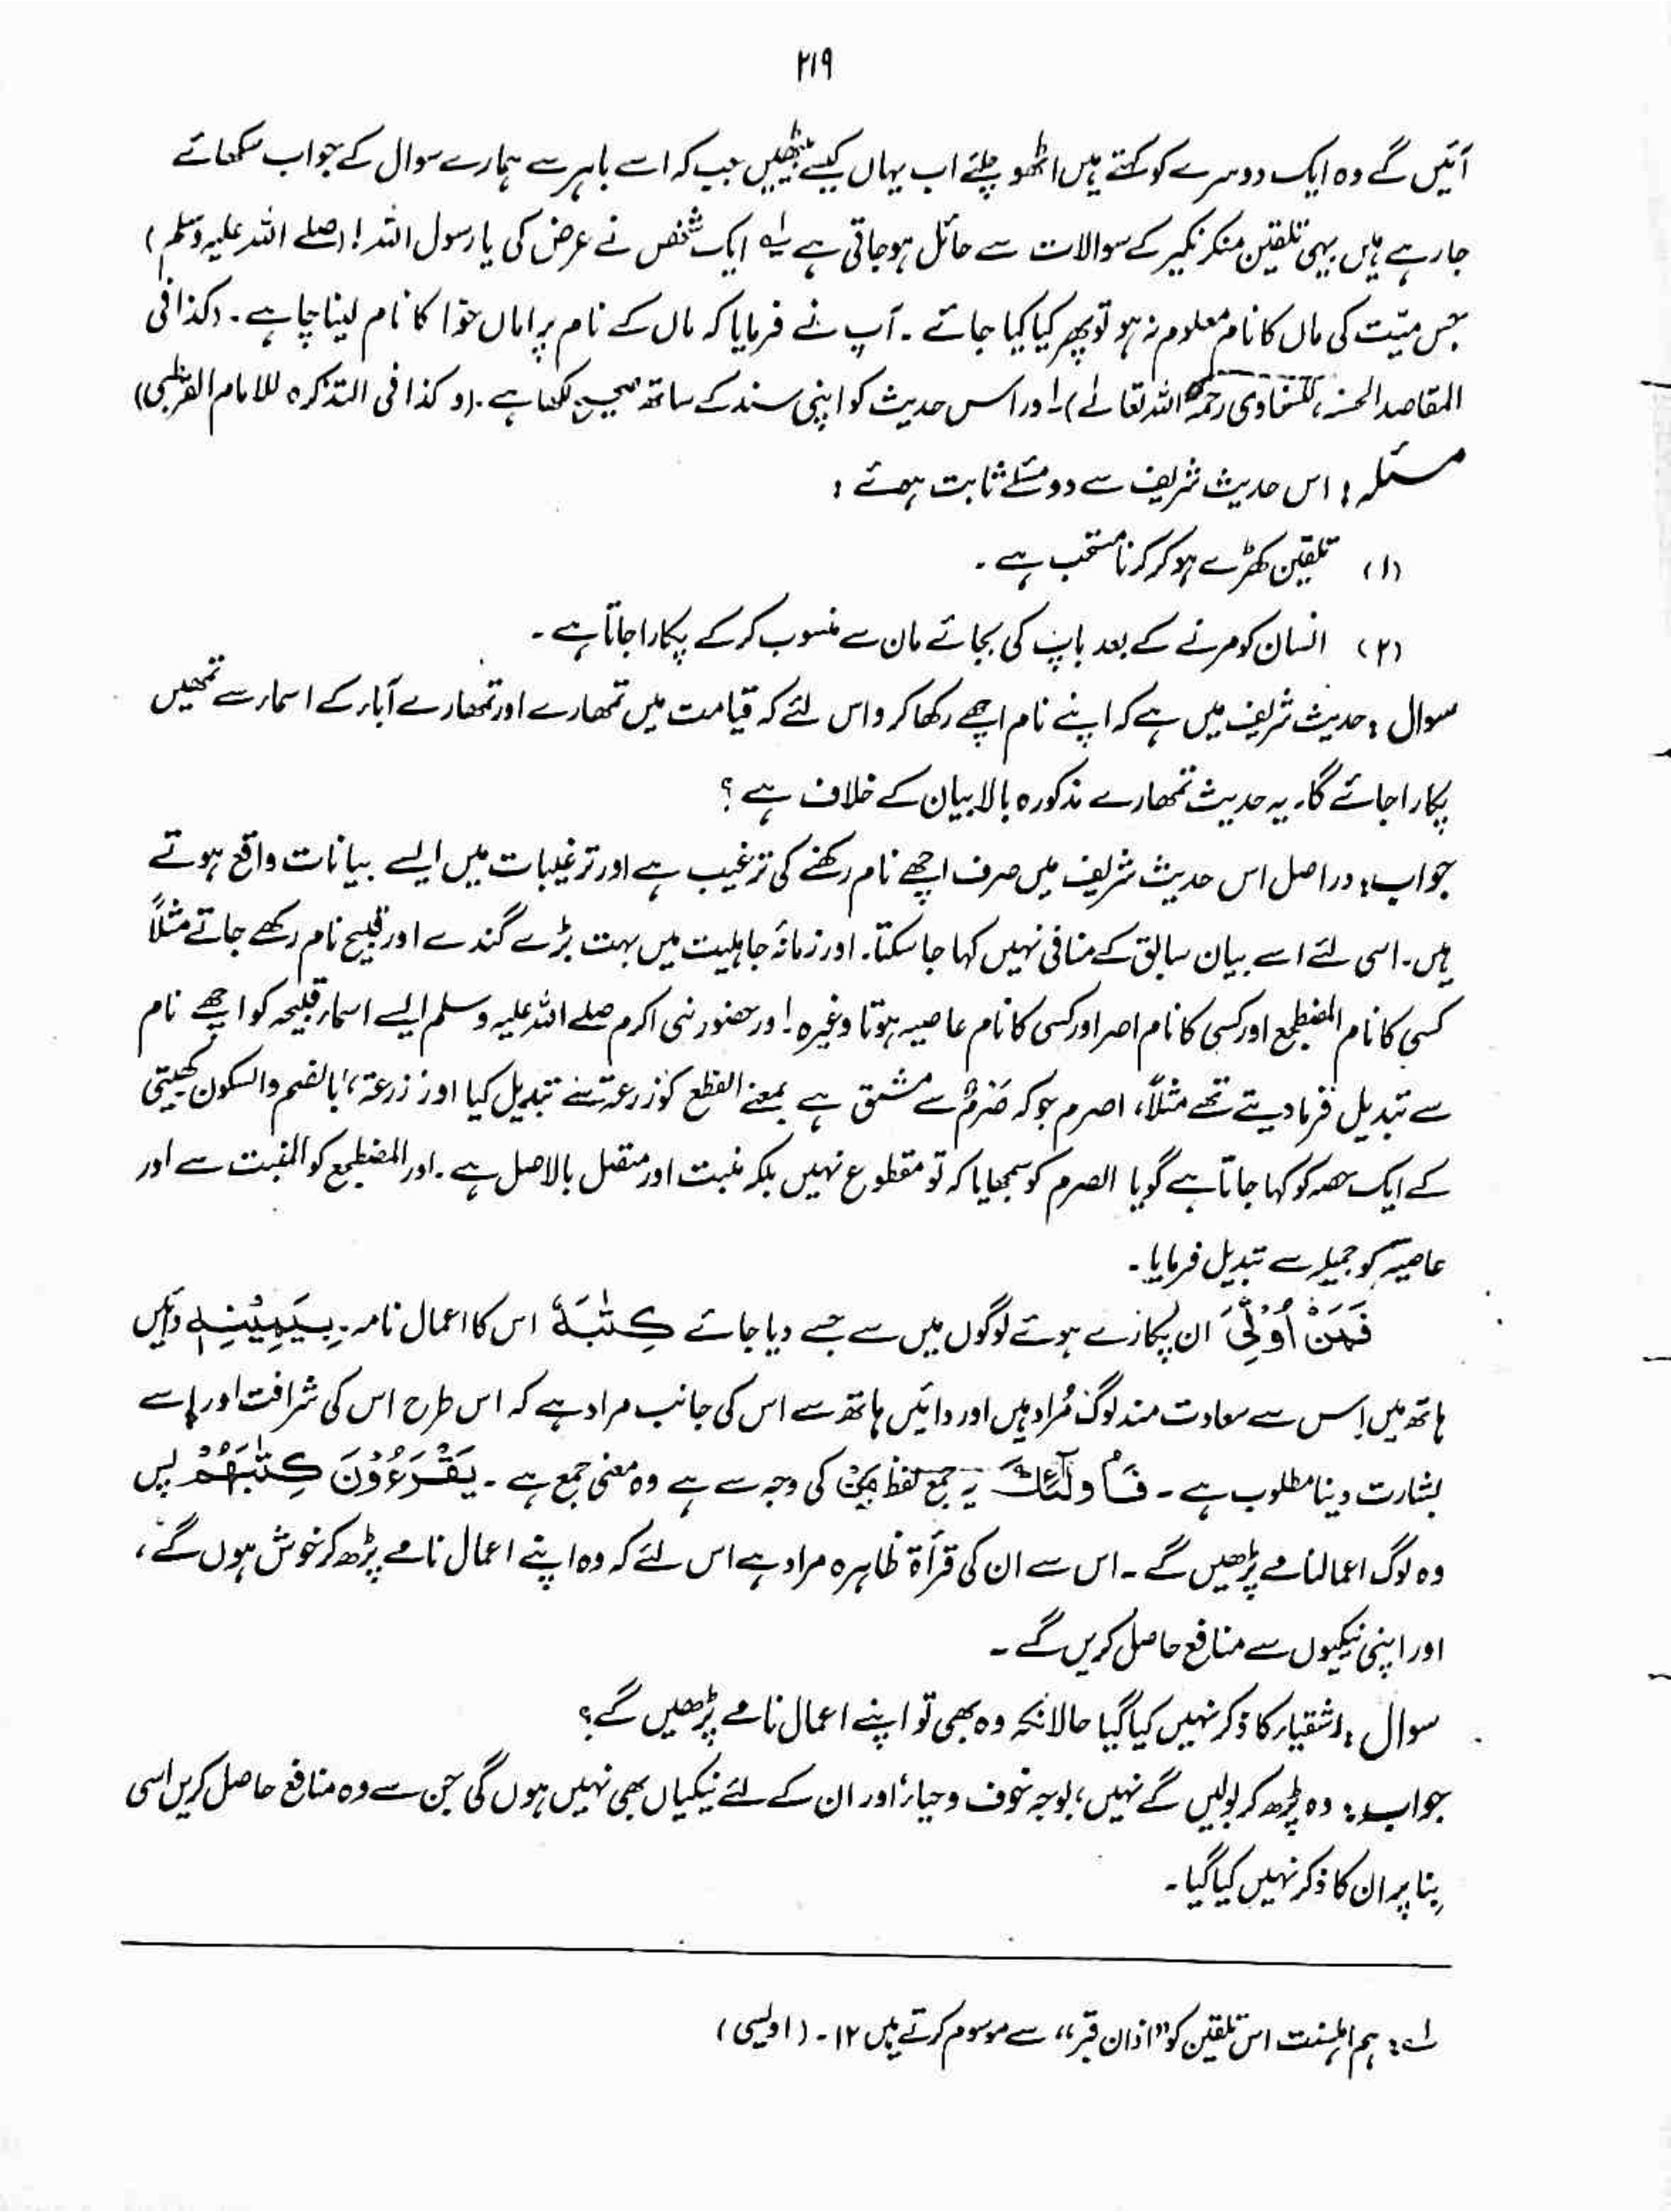 ۲۱۹
آئیں گے وہ ایک دوسرے کو کہتے ہیں اٹھو چلئے اب یہاں کیسے بیٹھیں جب کہ اسے باہر سے ہمارے سوال کے جواب سکھائے
جا رہے ہیں یہی تلقین منکر نکیر کے سوالات سے حائل ہو جاتی ہے لہ ایک شخص نے عرض کی یا رسول اللہ! (صلے اللہ علیہ وسلم)
جس میّت کی ماں کا نام معلوم نہ ہو تو پھر کیا کیا جائے ۔ آپ نے فرمایا کہ ماں کے نام پر اماں حوّا کا نام لینا چاہے ۔ (کذا فی
المقاصد الحسنہ، للسخاوی رحمہ اللہ تعالےٰ)۔ اور اس حدیث کو اپنی سند کے ساتھ صحیح لکھا ہے ۔ (و کذا فی التذکرہ للامام القرطبی)
مسئلہ : اس حدیث شریف سے دو مسئلے ثابت ہوئے :
(۱) تلقین کھڑے ہو کر کرنا مستحب ہے ۔
(۲) انسان کو مرنے کے بعد باپ کی بجائے مان سے منسوب کر کے پکارا جاتا ہے ۔
سوال : حدیث شریف میں ہے کہ اپنے نام اچھے رکھا کرو اس لئے کہ قیامت میں تمھارے اور تمھارے آباء کے اسماء سے تمھیں
پکارا جائے گا۔ یہ حدیث تمھارے مذکورہ بالا بیان کے خلاف ہے ؟
جواب: دراصل اس حدیث شریف میں صرف اچھے نام رکھنے کی ترغیب ہے اور ترغیبات میں ایسے بیانات واقع ہوتے
ہیں۔ اسی لئے اسے بیان سابق کے منافی نہیں کہا جا سکتا۔ اور زمانۂ جاہلیت میں بہت بڑے گندے اور قبیح نام رکھے جاتے مثلاً
کسی کا نام المضطجع اور کسی کا نام اصر اور کسی کا نام عاصیہ ہوتا وغیرہ! اور حضور نبی اکرم صلے اللہ علیہ وسلم ایسے اسماء قبیحہ کو اچھے نام
سے تبدیل فرما دیتے تھے مثلاً، اصرم جو کہ صَرْمٌ سے مشتق ہے بمعنے القطع کو زرعۃ سے تبدیل کیا اور زرعۃ، بالضم والسکون کھیتی
کے ایک حصہ کو کہا جاتا ہے گویا الصرم کو سمجھایا کہ تو مقطوع نہیں بلکہ منبت اور متصل بالاصل ہے ۔ اور المضطجع کو المنبت سے اور
عاصیہ کو جمیلہ سے تبدیل فرمایا ۔
فَمَنْ اُوْتِیَ ان پکارے ہوئے لوگوں میں سے جسے دیا جائے کِتٰبَہٗ اس کا اعمال نامہ ۔ بِیَمِیْنِہٖ دائیں
ہاتھ میں اس سے سعادت مند لوگ مُراد ہیں اور دائیں ہاتھ سے اس کی جانب مراد ہے کہ اس طرح اس کی شرافت اور اسے
بشارت دینا مطلوب ہے ۔ فَاُولٰٓئِکَ یہ جمع لفظ مَنْ کی وجہ سے ہے وہ معنی جمع ہے ۔ یَقْرَءُوْنَ کِتٰبَہُمْ پس
وہ لوگ اعمالنامے پڑھیں گے ۔ اس سے ان کی قرأۃ ظاہرہ مراد ہے اس لئے کہ وہ اپنے اعمال نامے پڑھ کر خوش ہوں گے ،
اور اپنی نیکیوں سے منافع حاصل کریں گے ۔
سوال : اشقیاء کا ذکر نہیں کیا گیا حالانکہ وہ بھی تو اپنے اعمال نامے پڑھیں گے ؟
جواب : وہ پڑھ کر بولیں گے نہیں ، بوجہ خوف و حیاء اور ان کے لئے نیکیاں بھی نہیں ہوں گی جن سے وہ منافع حاصل کریں اسی
بِنا پر ان کا ذکر نہیں کیا گیا ۔
لہ : ہم اہلسنت اس تلقین کو "اذان قبر" سے موسوم کرتے ہیں ۱۲ ۔ (اویسی)